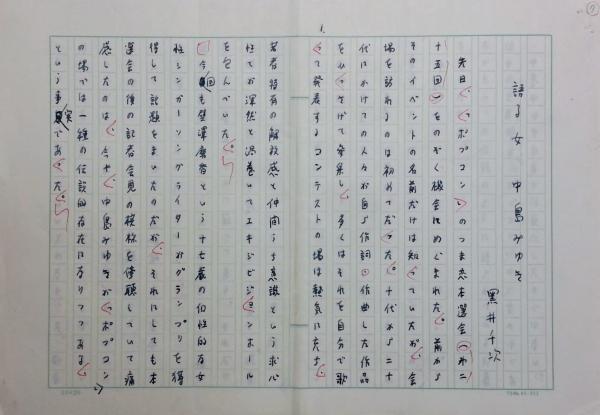 語る女 中島みゆき
黒井千次
先日、〈ポプコン〉のつま恋本選会(第二
十五回)をのぞく機会にめぐまれた。前から
そのイベントの名前だけは知っていたが、会
場を訪れるのは初めてだった。十代から二十
代にかけての人々が自ら作詞・作曲した作品
をひっさげて参集し、多くはそれを自分で歌
って発表するコンテストの場は熱気にみち、
若者特有の解放感と仲間うち意識という求心
性とが渾然と渦巻いてエキジビジョンホール
を包んでいた。
今回も
という十七歳の個性的な女
性シンガーソングライターがグランプリを獲
得して話題をまいたのだが、それにしても本
選会の後の記者会見の模様を傍聴していて痛
感したのは、今や、中島みゆきが〈ポプコン〉
の場では一種の伝説的存在になりつつある、
という事実であった。
1.